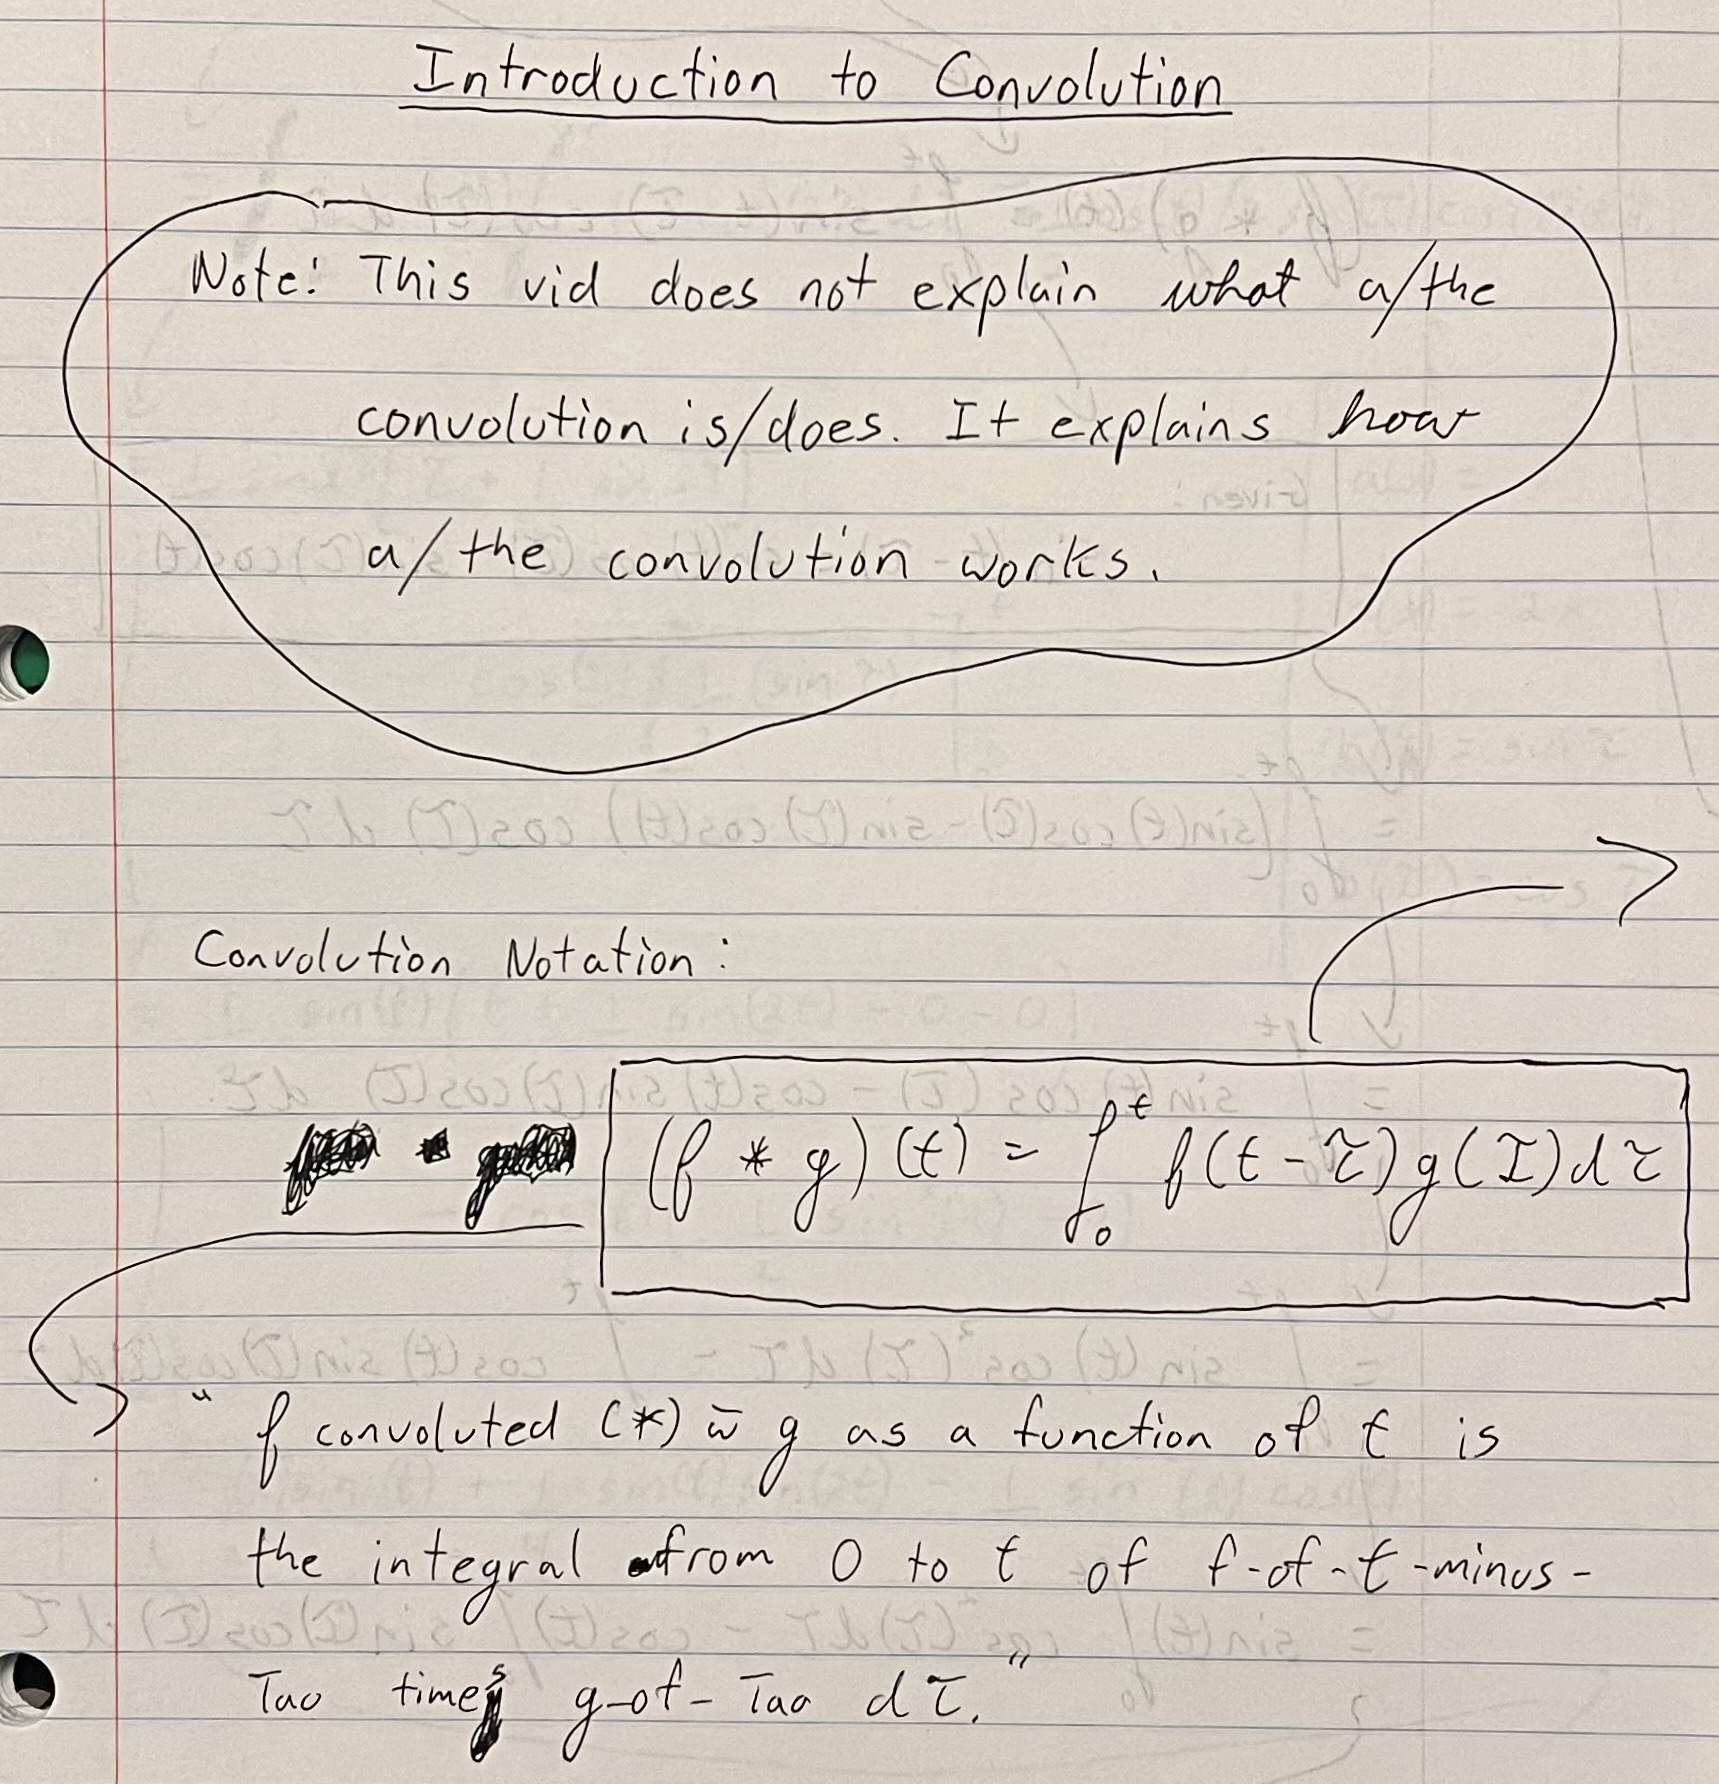 Introduction to Convolution
Note: This vid does not explain what a/the
convolution is/does. It explains how
a/the convolution works.
Convolution Notation:
(f * g)(t) = ∫₀ᵗ f(t-τ)g(τ)dτ
"f convoluted (*) w̄ g as a function of t is
the integral from 0 to t of f-of-t-minus-
Tao times g-of-Tao dτ."